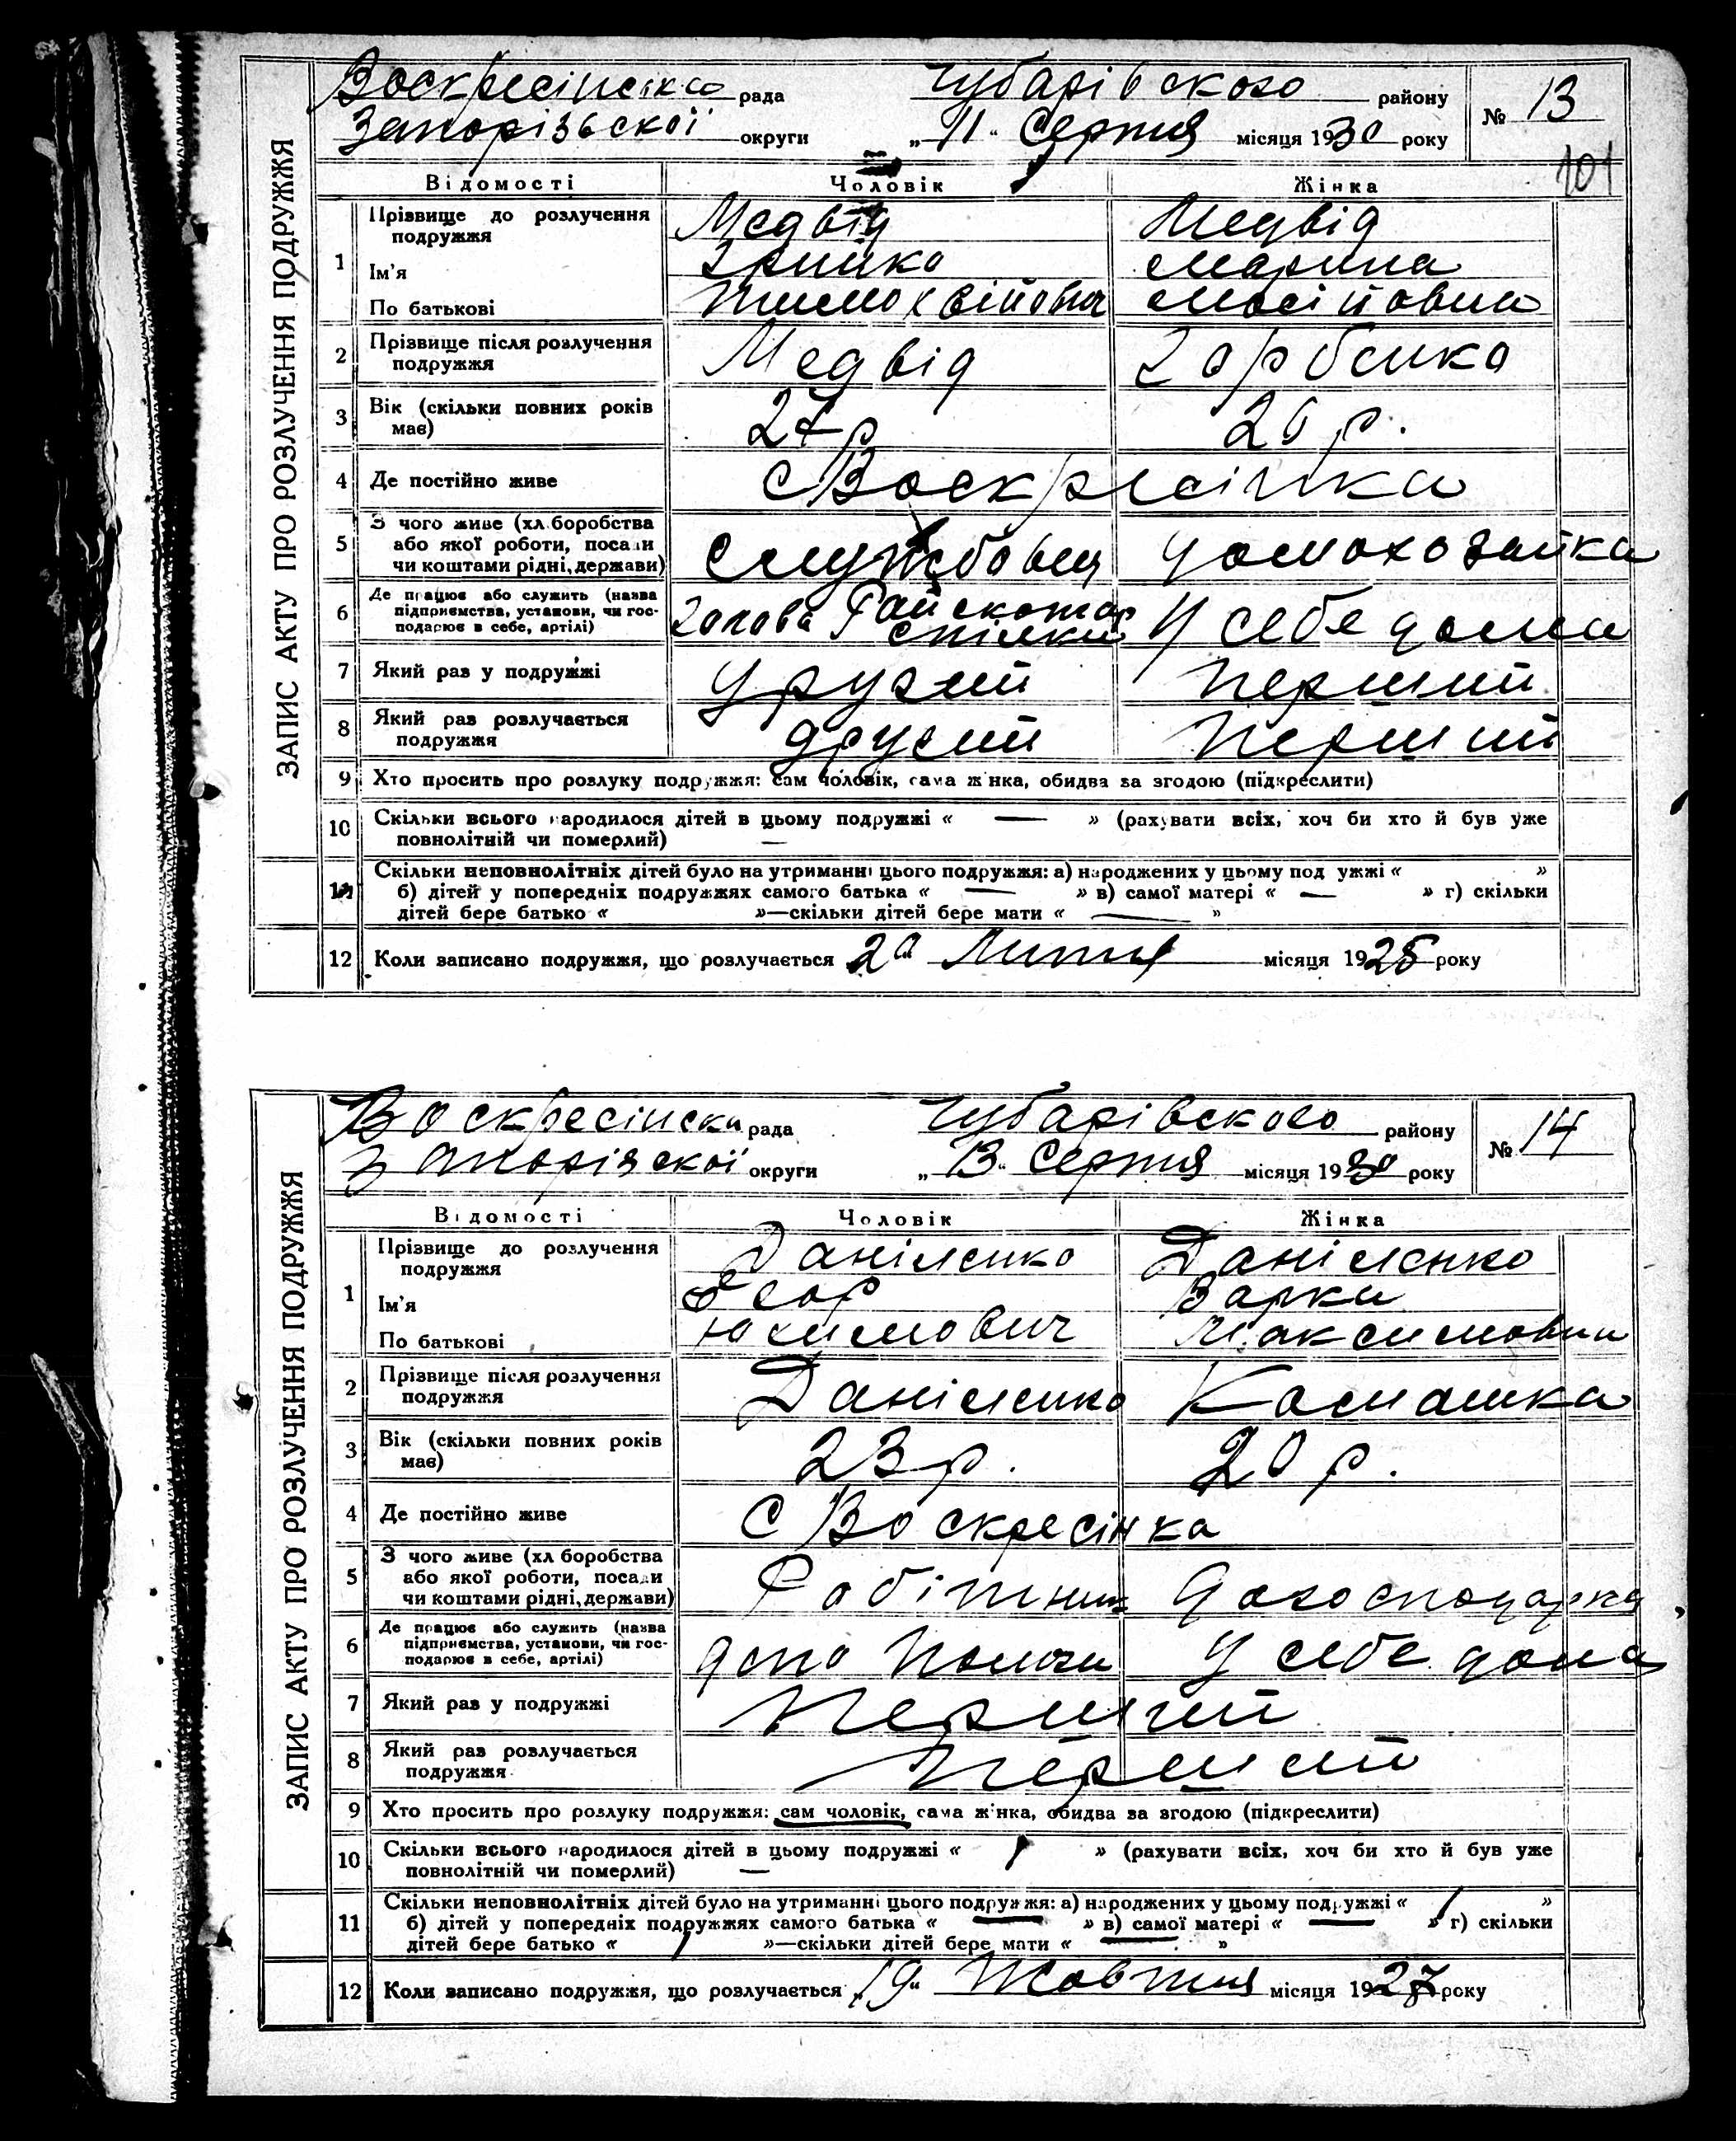 ЗАПИС АКТУ ПРО РОЗЛУЧЕННЯ ПОДРУЖЖЯ
Воскресінська рада Чубарівського району № 13
Запорізьської округи „11" Серпня місяця 1930 року
101
Відомості Чоловік Жінка
1 Прізвище до розлучення подружжя Медвід Медвід
Ім'я Грицько Марина
По батькові Тимохвійович Мосійовна
2 Прізвище після розлучення подружжя Медвід Горбенко
3 Вік (скільки повних років має) 27 р 20 р.
4 Де постійно живе с Воскресінка
5 З чого живе (хліборобства або якої роботи, посади чи коштами рідні, держави) Службовец домохозайка
6 Де працює або служить (назва підприємства, установи, чи господарює в себе, артілі) Голова Райскотар спілки У себе дома
7 Який раз у подружжі другий перший
8 Який раз розлучається подружжя другий перший
9 Хто просить про розлуку подружжя: сам чоловік, сама жінка, обидва за згодою (підкреслити)
10 Скільки всього народилося дітей в цьому подружжі « — » (рахувати всіх, хоч би хто й був уже
повнолітній чи померлий) —
11 Скільки неповнолітніх дітей було на утриманні цього подружжя: а) народжених у цьому подружжі « »
б) дітей у попередніх подружжях самого батька « — » в) самої матері « — » г) скільки
дітей бере батько « »—скільки дітей бере мати « — »
12 Коли записано подружжя, що розлучається Липня місяця 1925 року
ЗАПИС АКТУ ПРО РОЗЛУЧЕННЯ ПОДРУЖЖЯ
Воскресінска рада Чубарівского району № 14
Запорізскої округи „13" Серпня місяця 1930 року
Відомості Чоловік Жінка
1 Прізвище до розлучення подружжя Даніленко Даніленко
Ім'я Варка
По батькові Юхимович Максимовна
2 Прізвище після розлучення подружжя Даніленко
3 Вік (скільки повних років має) 23 р. 20 р.
4 Де постійно живе с Воскресінка
5 З чого живе (хліборобства або якої роботи, посади чи коштами рідні, держави) Робітник
6 Де працює або служить (назва підприємства, установи, чи господарює в себе, артілі) депо Пологи У себе дома
7 Який раз у подружжі перший
8 Який раз розлучається подружжя перший
9 Хто просить про розлуку подружжя: сам чоловік, сама жінка, обидва за згодою (підкреслити)
10 Скільки всього народилося дітей в цьому подружжі « 1 » (рахувати всіх, хоч би хто й був уже
повнолітній чи померлий) —
11 Скільки неповнолітніх дітей було на утриманні цього подружжя: а) народжених у цьому подружжі « 1 »
б) дітей у попередніх подружжях самого батька « — » в) самої матері « — » г) скільки
дітей бере батько « 1 »—скільки дітей бере мати « — »
12 Коли записано подружжя, що розлучається „19" Жовтня місяця 1927 року